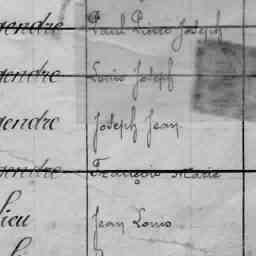 gendre Paul Pierre Joseph
gendre Louis Joseph
gendre Joseph Jean
gendre François Marie
lieu Jean Louis